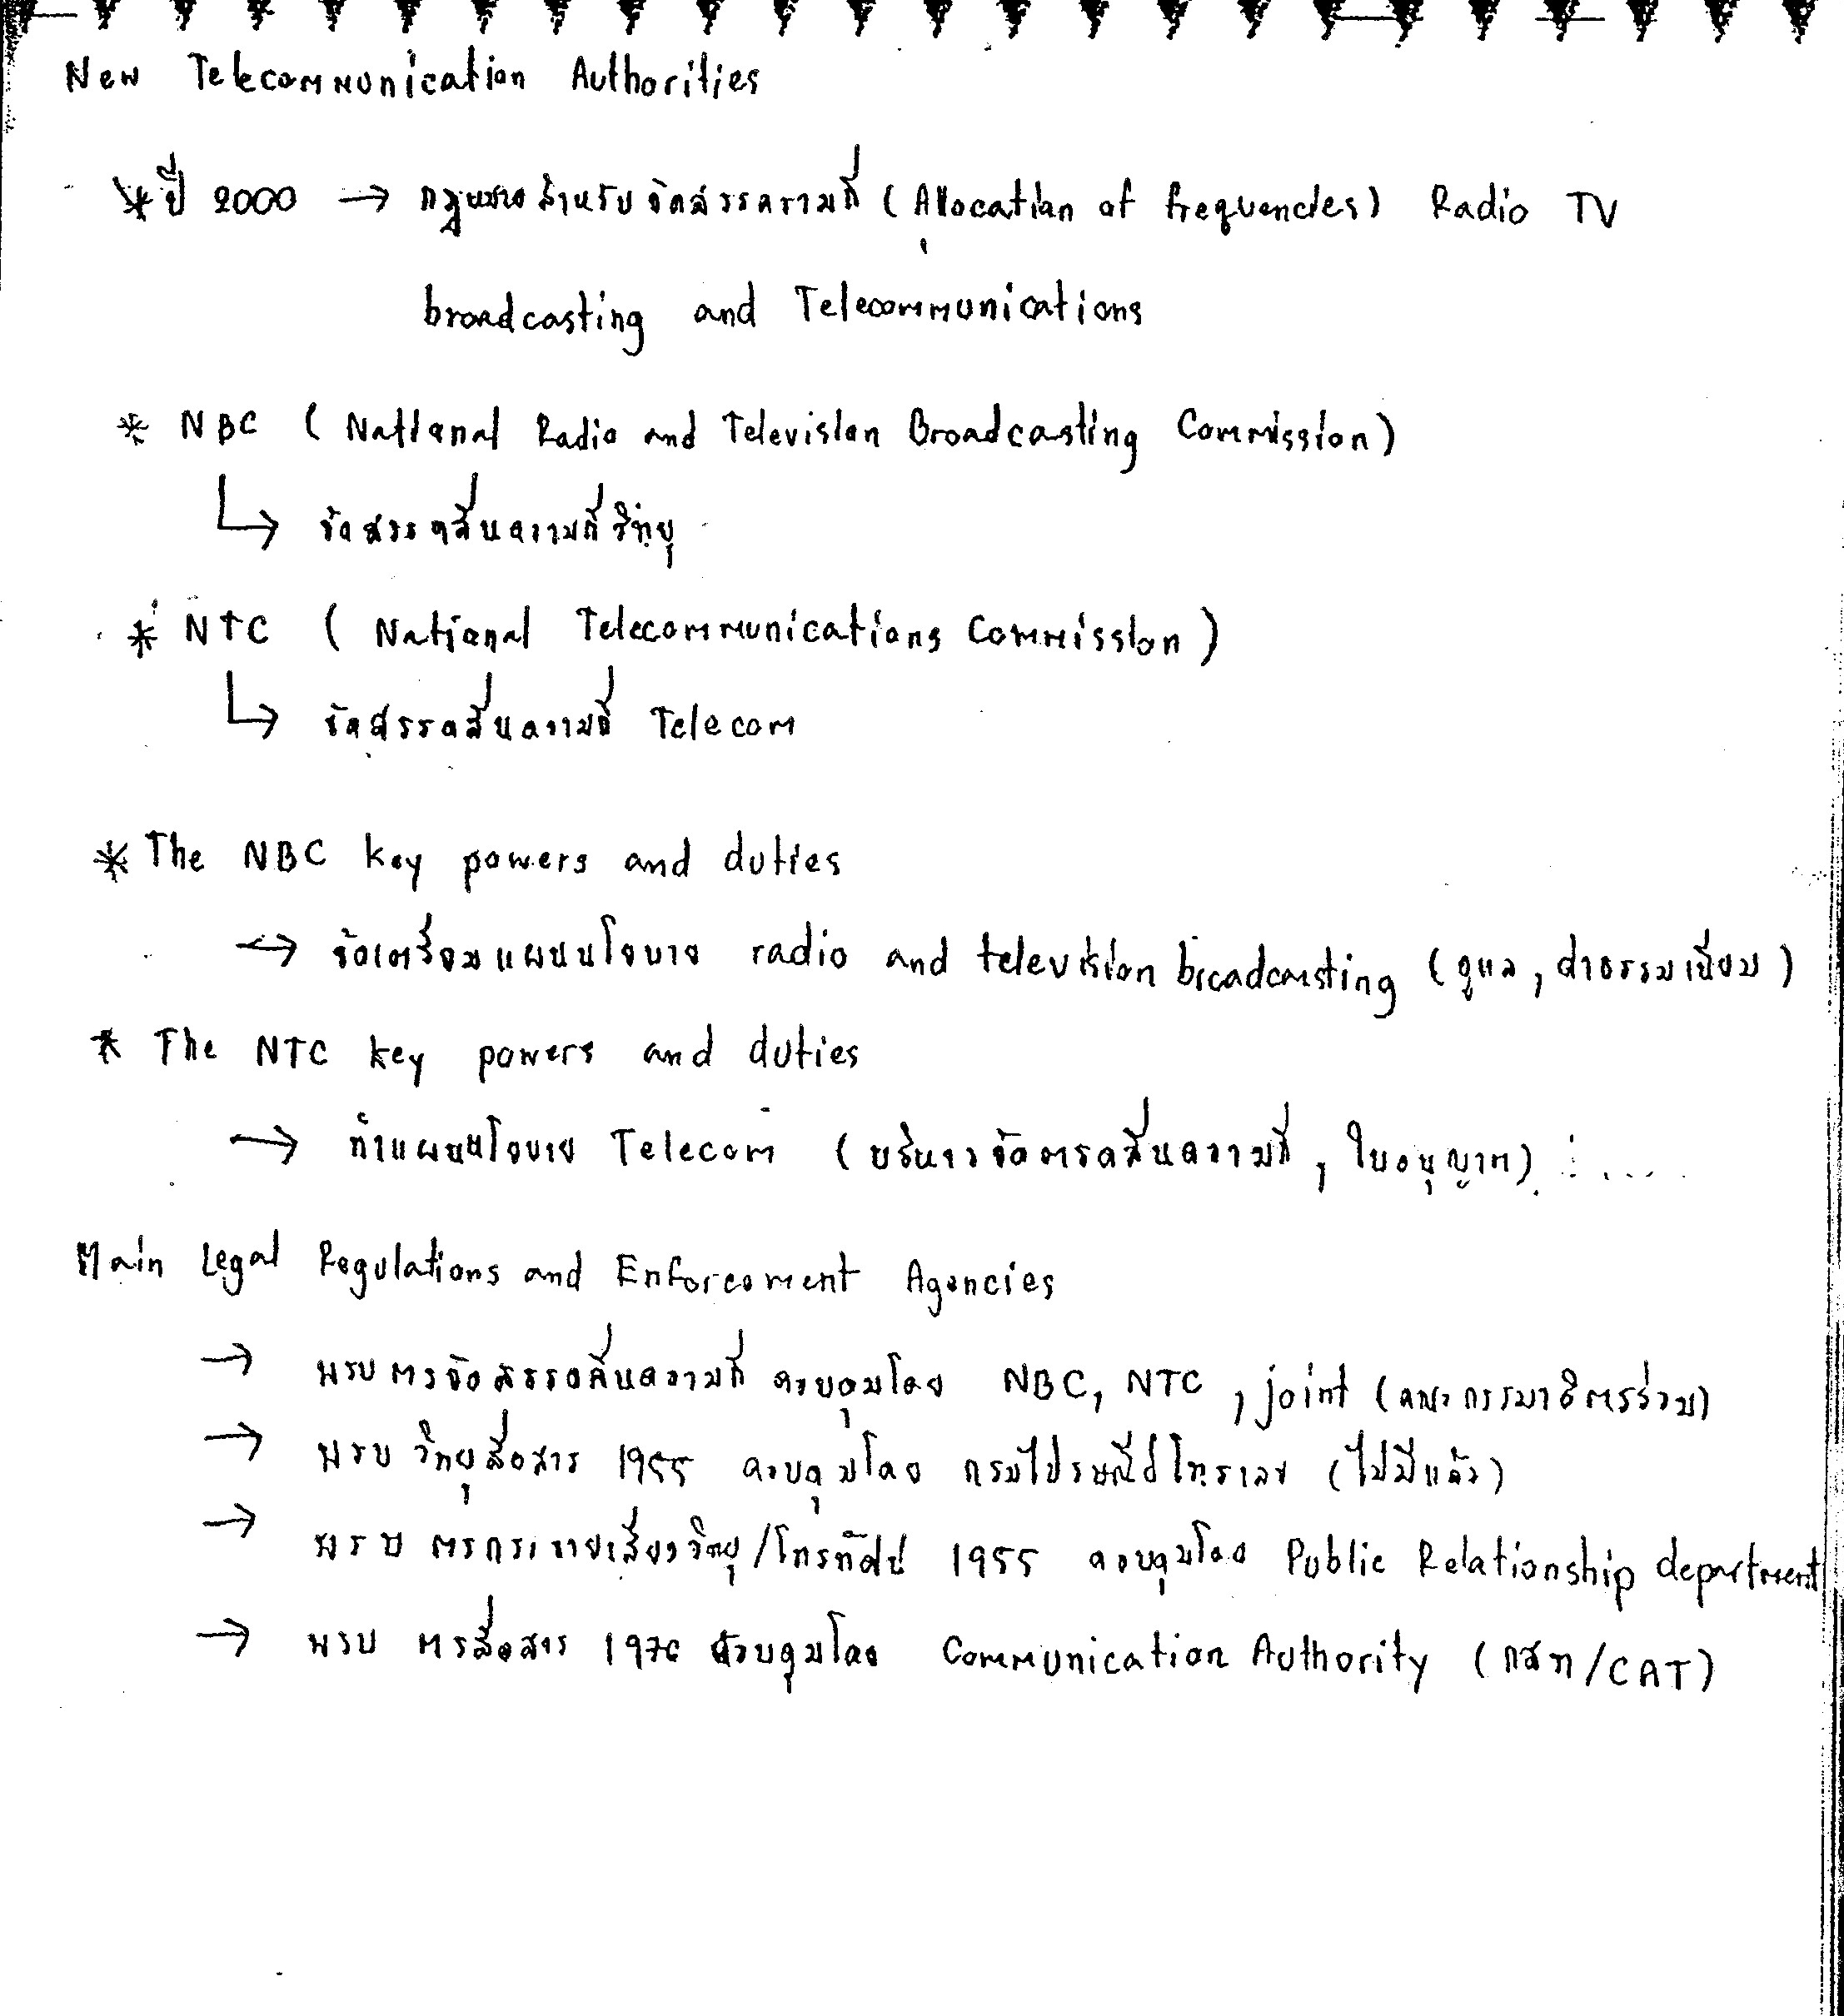 New Telecommunication Authorities
* ปี 2000 → กฎหมายสำหรับจัดสรรความถี่ (Allocation of frequencies) Radio TV
broadcasting and Telecommunications
* NBC (National Radio and Television Broadcasting Commission)
↳ จัดสรรคลื่นความถี่วิทยุ
* NTC (National Telecommunications Commission)
↳ จัดสรรคลื่นความถี่ Telecom
* The NBC key powers and duties
→ จัดเตรียมแผนนโยบาย radio and television broadcasting (ดูแล, ค่าธรรมเนียม)
* The NTC key powers and duties
→ ทำแผนนโยบาย Telecom (บริหารจัดการคลื่นความถี่, ใบอนุญาต)
Main Legal Regulations and Enforcement Agencies
→ พรบ การจัดสรรคลื่นความถี่ ควบคุมโดย NBC, NTC, joint (คณะกรรมาธิการร่วม)
→ พรบ วิทยุสื่อสาร 1955 ควบคุมโดย กรมไปรษณีย์โทรเลข (ไม่มีแล้ว)
→ พรบ การกระจายเสียงวิทยุ/โทรทัศน์ 1955 ควบคุมโดย Public Relationship department
→ พรบ การสื่อสาร 1976 ควบคุมโดย Communication Authority (กสท/CAT)